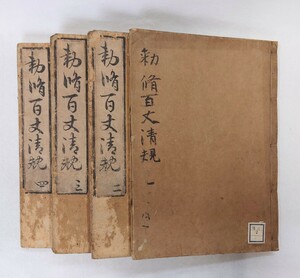 勅脩百丈清規
一
勅脩百丈清規
二
勅脩百丈清規
三
勅脩百丈清規
四